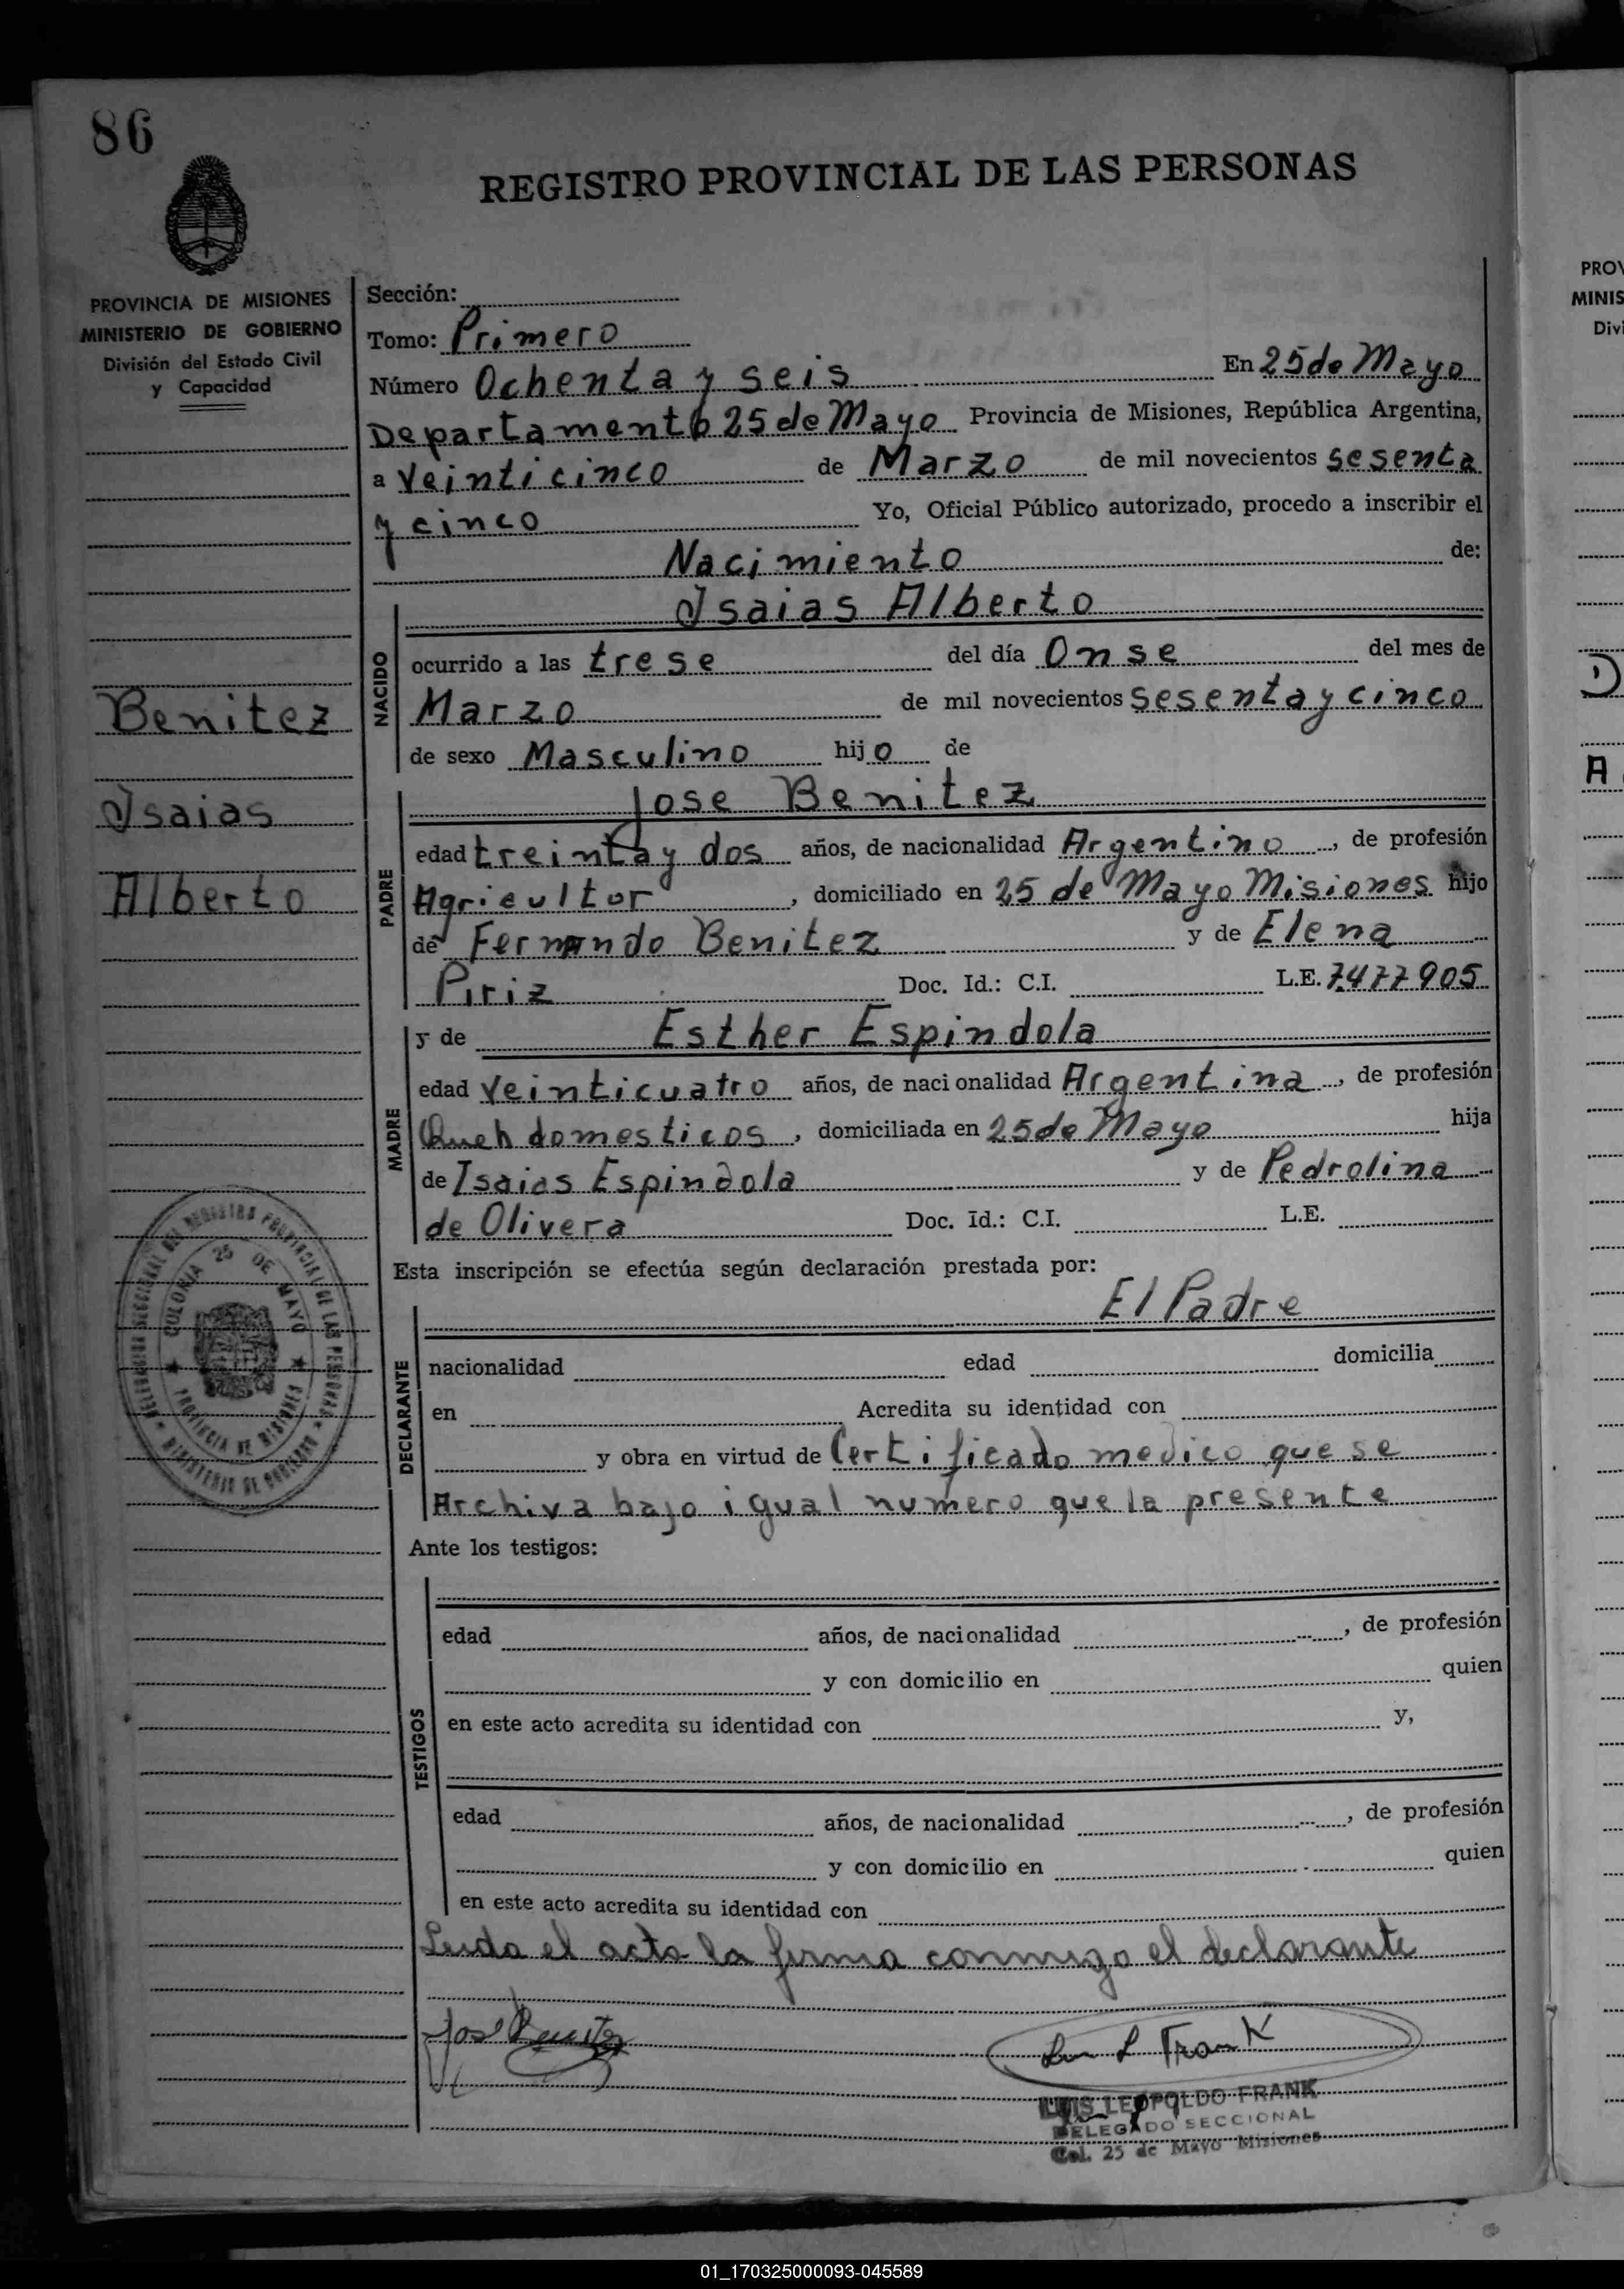 86
REGISTRO PROVINCIAL DE LAS PERSONAS
PROVINCIA DE MISIONES
MINISTERIO DE GOBIERNO
División del Estado Civil
y Capacidad
Benitez
Isaias
Alberto
Sección:
Tomo: Primero
Número Ochenta y seis En 25 de Mayo
Departamento 25 de Mayo Provincia de Misiones, República Argentina,
a Veinticinco de Marzo de mil novecientos sesenta
y cinco Yo, Oficial Público autorizado, procedo a inscribir el
Nacimiento de:
Isaias Alberto
NACIDO
ocurrido a las trese del día Onse del mes de
Marzo de mil novecientos sesenta y cinco
de sexo Masculino hijo de
Jose Benitez
PADRE
edad treinta y dos años, de nacionalidad Argentino, de profesión
Agricultor, domiciliado en 25 de Mayo Misiones hijo
de Fernando Benitez y de Elena
Piriz Doc. Id.: C.I. L.E. 7.477905
MADRE
y de Esther Espindola
edad Veinticuatro años, de nacionalidad Argentina, de profesión
Queh domesticos, domiciliada en 25 de Mayo hija
de Isaias Espindola y de Pedrolina
de Olivera Doc. Id.: C.I. L.E.
Esta inscripción se efectúa según declaración prestada por:
El Padre
DECLARANTE
nacionalidad edad domicilia
en Acredita su identidad con
y obra en virtud de Certificado medico que se
Archiva bajo igual numero que la presente
DELEGACION SECCIONAL DEL REGISTRO PROVINCIAL DE LAS PERSONAS
COLONIA 25 DE MAYO
PROVINCIA DE MISIONES
MINISTERIO DE GOBIERNO
Ante los testigos:
TESTIGOS
edad años, de nacionalidad, de profesión
y con domicilio en quien
en este acto acredita su identidad con y,
edad años, de nacionalidad, de profesión
y con domicilio en quien
en este acto acredita su identidad con
Leida el acta la firma conmigo el declarante
José Benitez
Luis L Frank
LUIS LEOPOLDO FRANK
DELEGADO SECCIONAL
Col. 25 de Mayo Misiones
PROV
MINIS
Divi
D
A
01_170325000093-045589